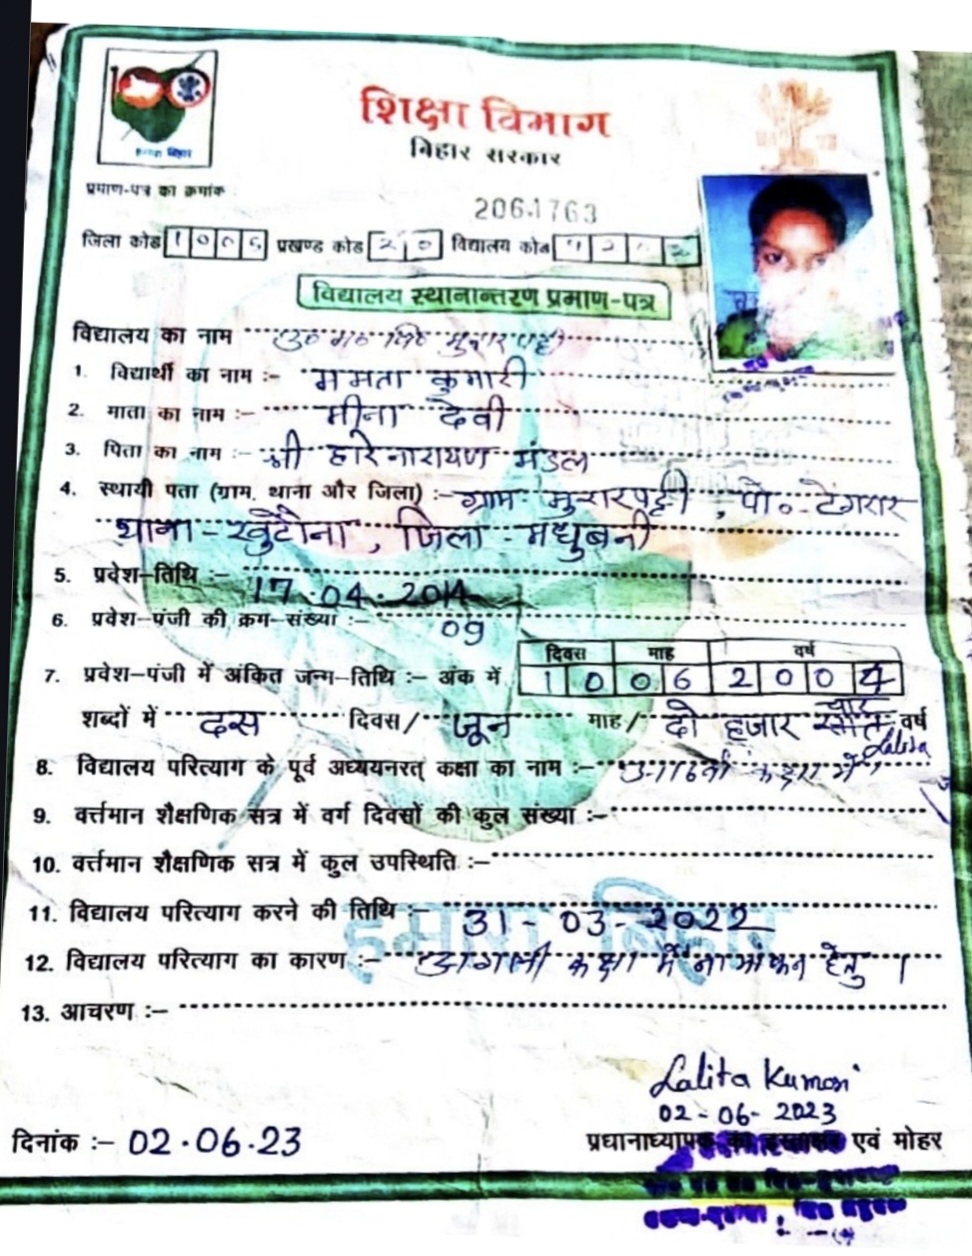 शिक्षा विभाग
बिहार सरकार
प्रमाण-पत्र का क्रमांक
2061763
जिला कोड 1006 प्रखण्ड कोड 20 विद्यालय कोड
विद्यालय स्थानान्तरण प्रमाण-पत्र
विद्यालय का नाम उ० म० वि०
1. विद्यार्थी का नाम :- ममता कुमारी
2. माता का नाम :- मीना देवी
3. पिता का नाम :- श्री हरिनारायण मंडल
4. स्थायी पता (ग्राम, थाना और जिला) :- ग्राम , पो०- टेंगरार
थाना - खुटौना , जिला - मधुबनी
5. प्रवेश-तिथि :- 17.04.2014
6. प्रवेश-पंजी की क्रम-संख्या :- 09
दिवस माह वर्ष
7. प्रवेश-पंजी में अंकित जन्म-तिथि :- अंक में 10 06 2004
शब्दों में दस दिवस/ जून माह/ दो हजार चार वर्ष
Lalita
8. विद्यालय परित्याग के पूर्व अध्ययनरत् कक्षा का नाम :- कक्षा में
9. वर्त्तमान शैक्षणिक सत्र में वर्ग दिवसों की कुल संख्या :-
10. वर्त्तमान शैक्षणिक सत्र में कुल उपस्थिति :-
हमारा बिहार
11. विद्यालय परित्याग करने की तिथि :- 31-03-2022
12. विद्यालय परित्याग का कारण :- अगली कक्षा में नामांकन हेतु ।
13. आचरण :-
Lalita Kumari
02-06-2023
दिनांक :- 02.06.23
प्रधानाध्यापक का हस्ताक्षर एवं मोहर